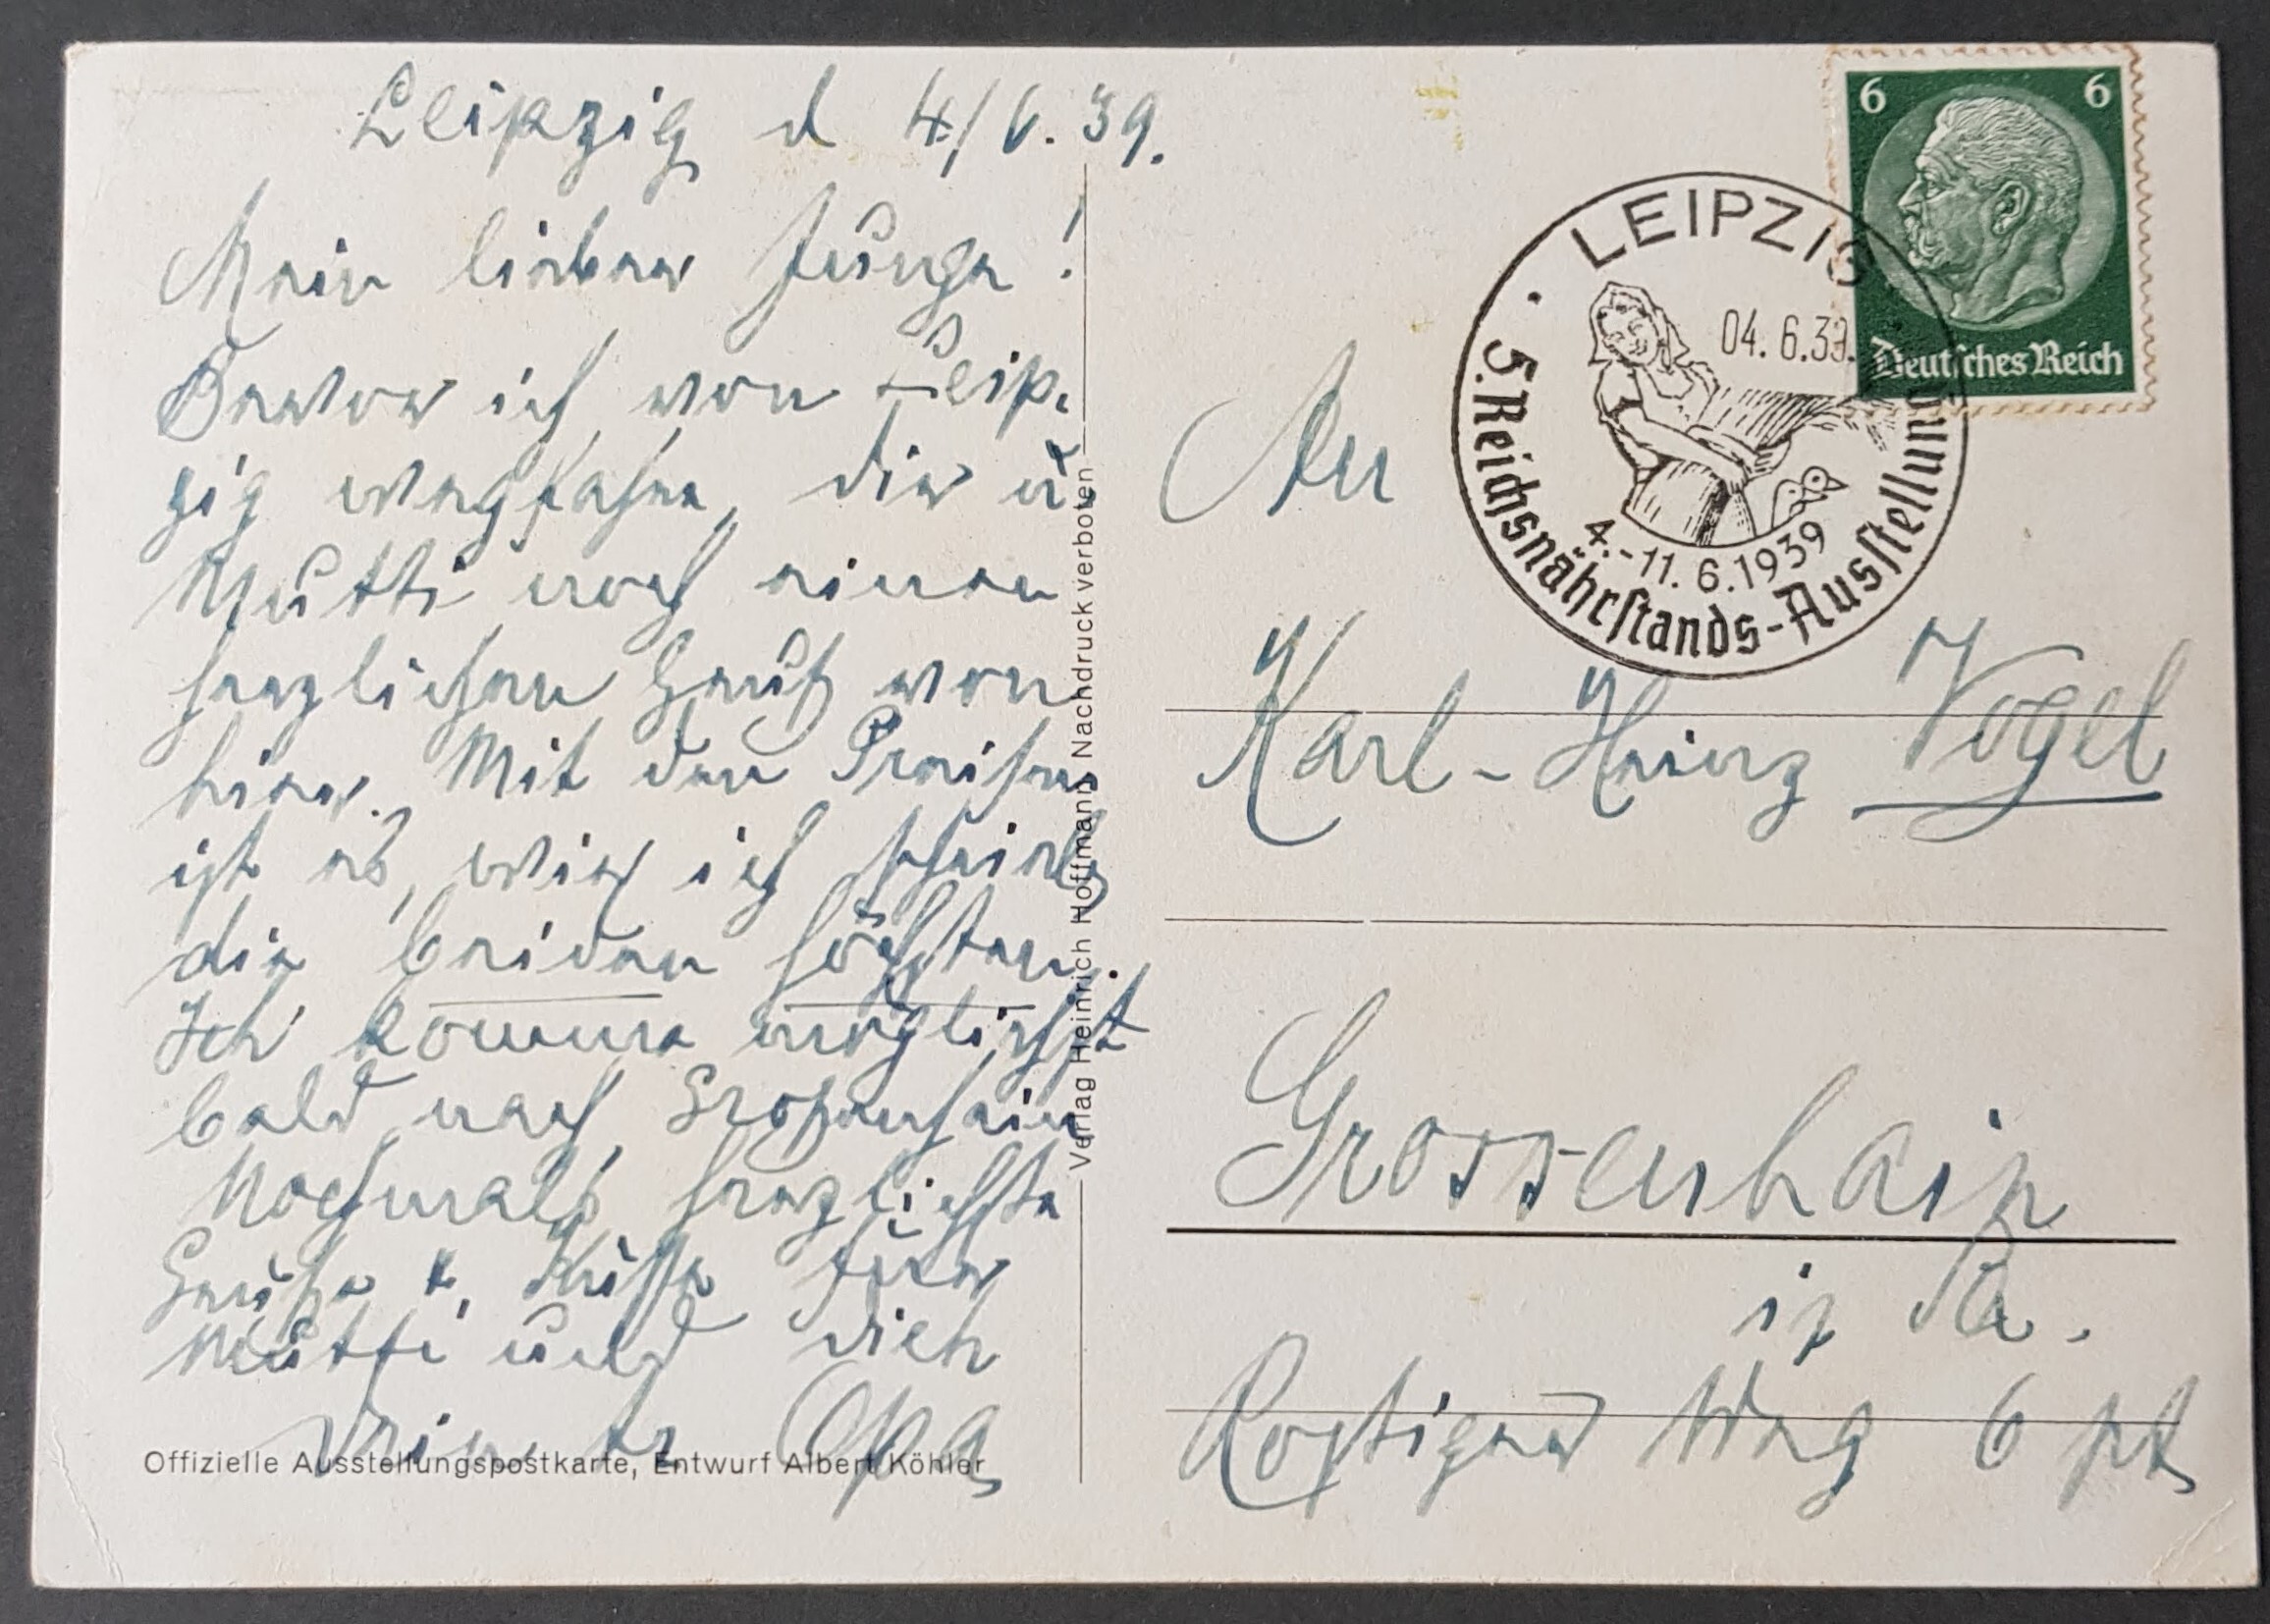 Leipzig d 4/6.39.
Mein lieber Junge!
Bevor ich von Leip-
zig wegfahre, dir u.
Mutti noch einen
herzlichen Gruß von
hier. Mit den Preisen
ist es, wie ich schrieb,
die beiden höchsten.
Ich komme möglichst
bald nach Großenhain
Nochmals herzlichste
Grüße u. Küsse Für
Mutti und dich
Opa
Offizielle Ausstellungspostkarte, Entwurf Albert Köhler
Verlag Heinrich Hoffmann, Nachdruck verboten
6 6
Deutsches Reich
LEIPZIG
04.6.39.
4.-11.6.1939
5. Reichsnährstands-Ausstellung
An
Karl-Heinz Vogel
Grossenhain
i/ Sa.
Rostiger Weg 6 pt